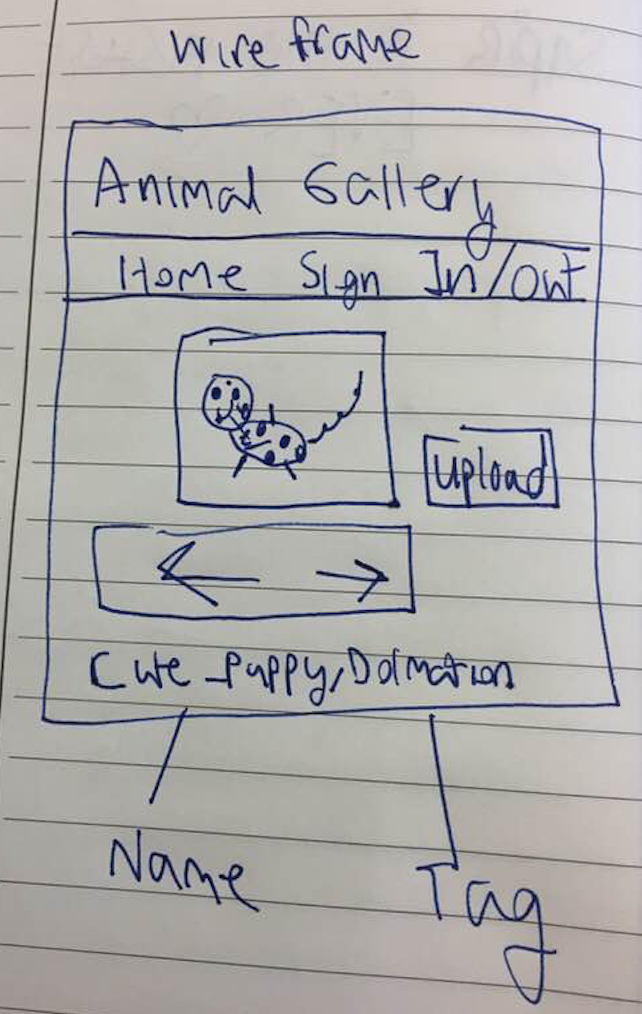 Wireframe
Animal Gallery
Home Sign In/Out
Upload
Cute Puppy, Dalmation
Name
Tag